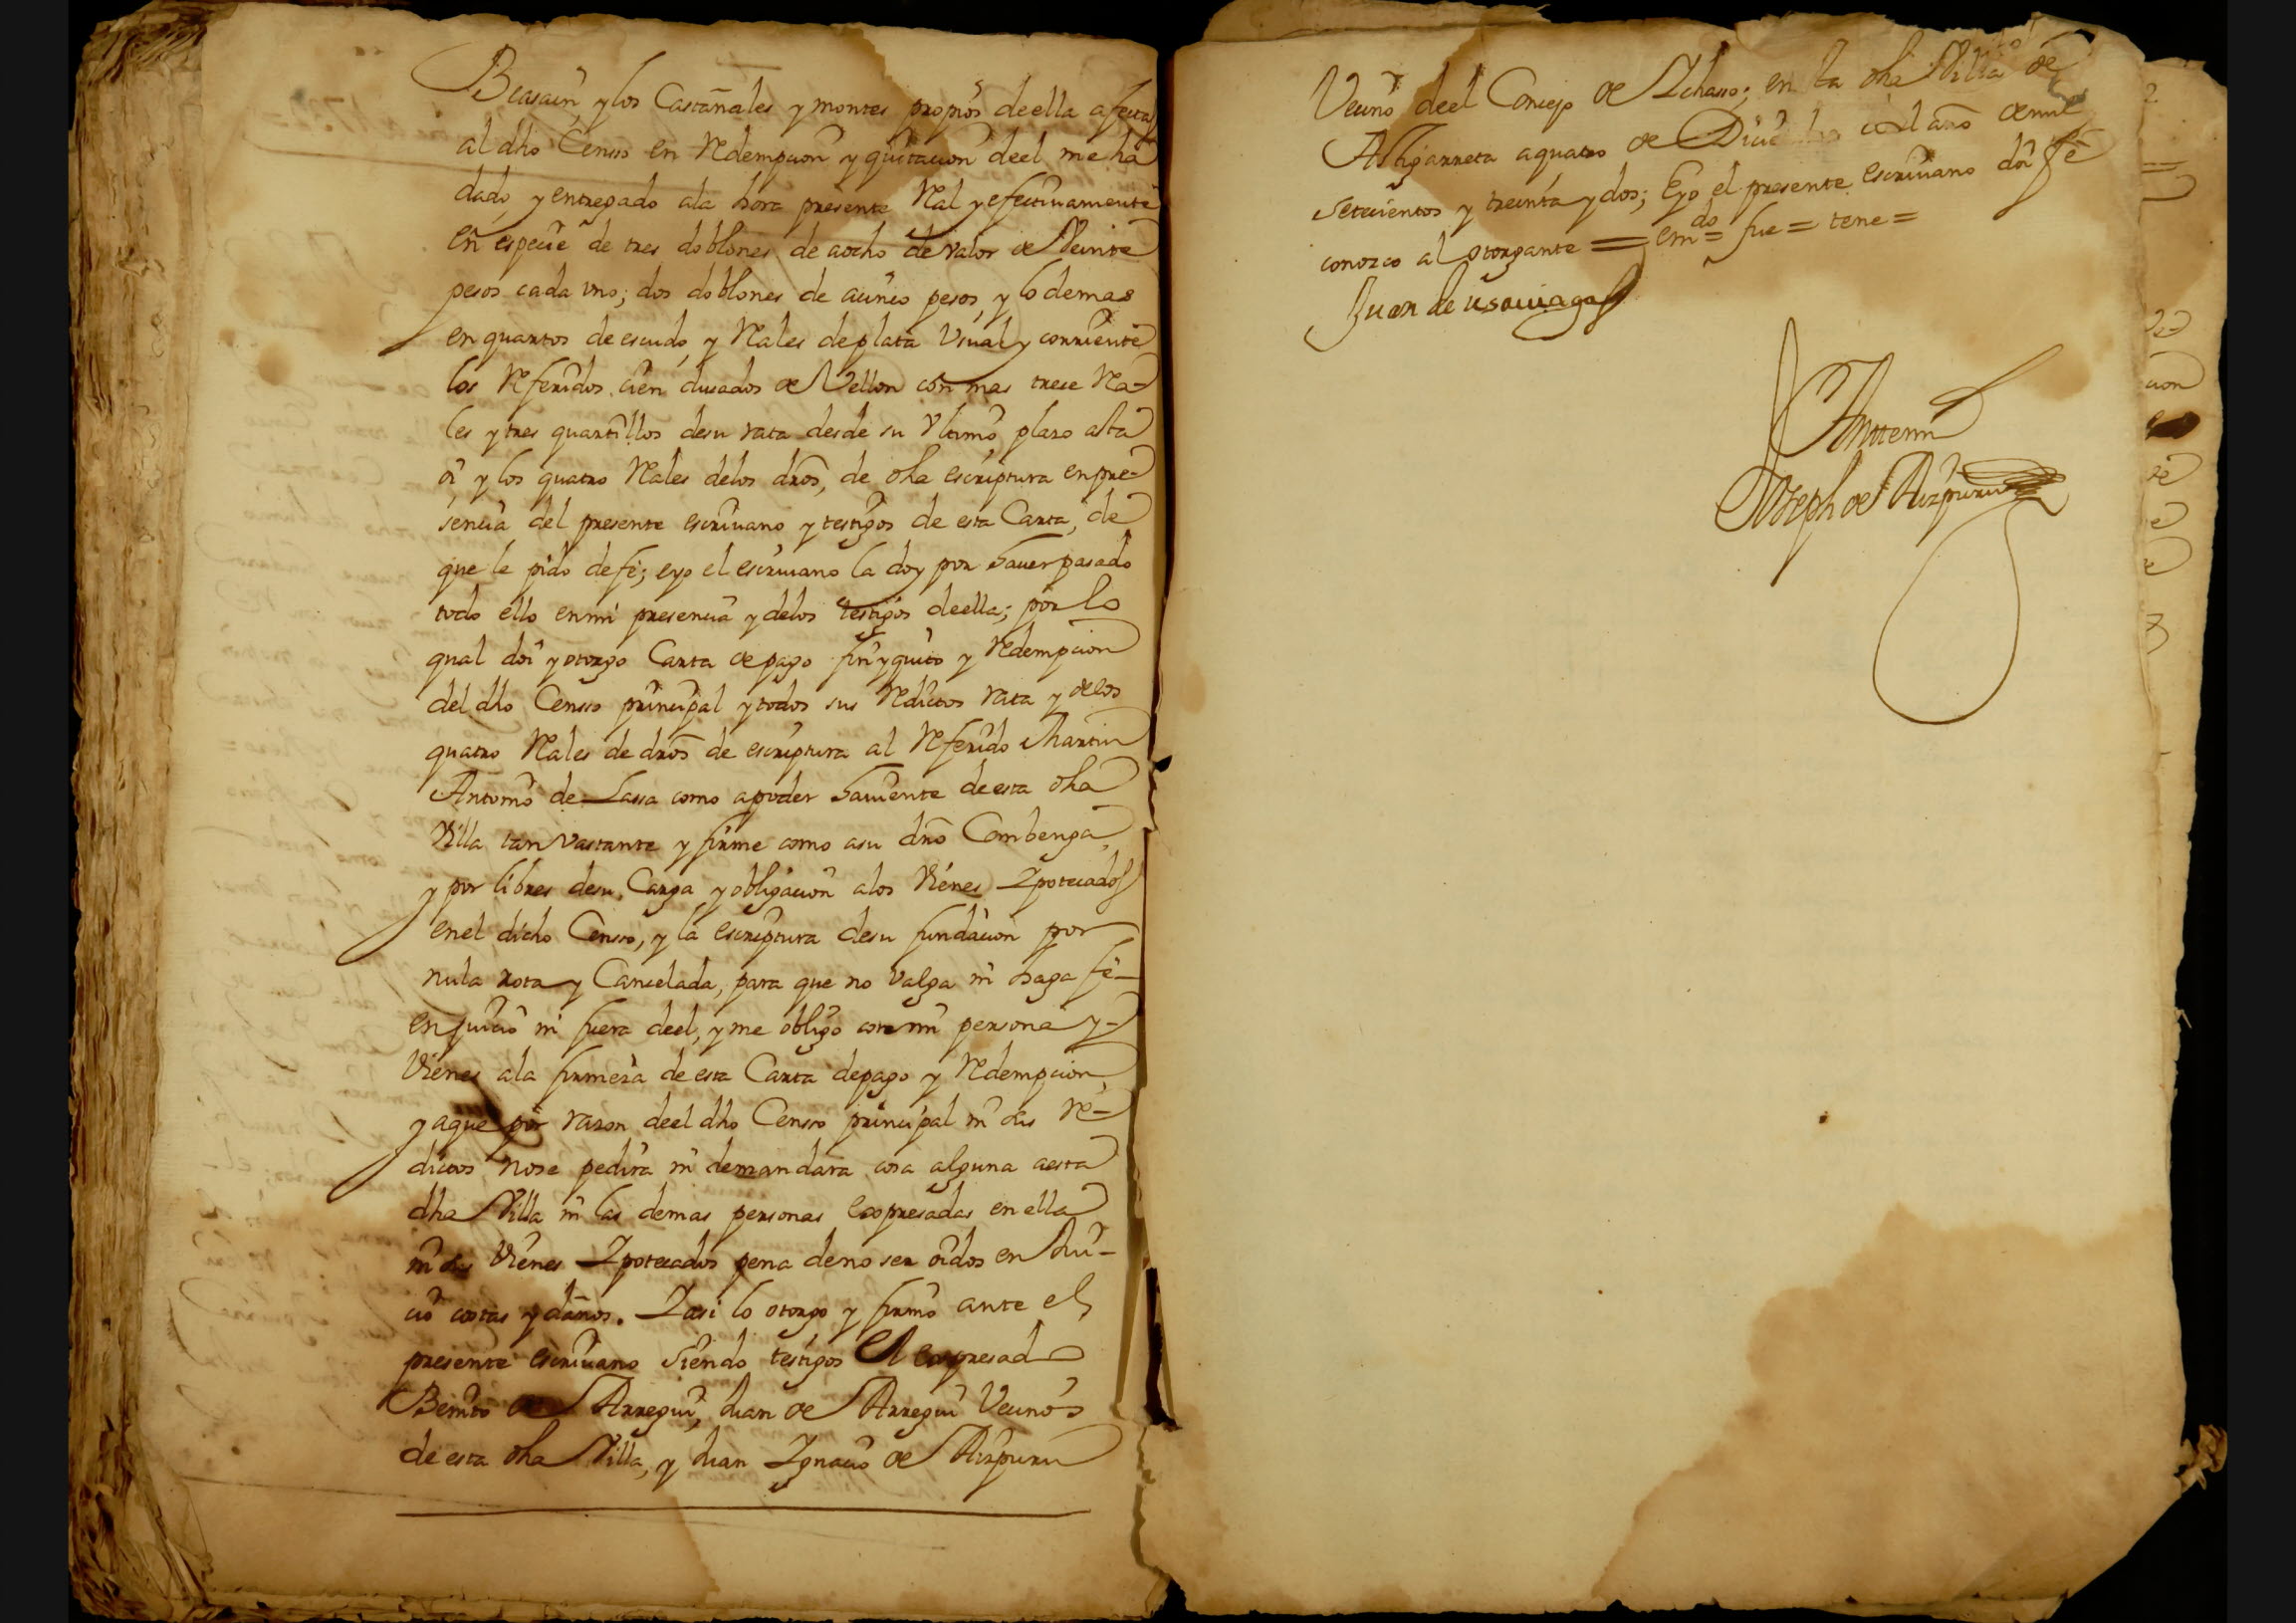 Beasain, y los Castañales y montes propios de ella afectas
al dho Censso en Redempcion y quitacion de el me ha
dado y entregado ala hora presente Real y efectivamente
en especie de tres doblones de aocho de valor de Veinte
pesos cada vno; dos doblones de acinco pesos, y lo demas
en quartos de escudo, y Reales de plata Vsual y corriente
los Referidos cien ducados de Vellon con mas trece Rea-
les y tres quartillos desu rata desde su Vltimo plazo asta
oi y los quatro Reales delos dros, de dha escriptura en pre-
sencia del presente escrivano y testigos de esta Carta, de
que le pido de fe; e yo el escrivano la doy por haver pasado
todo ello enmi presencia y delos testigos de ella; por lo
qual doi y otorgo Carta de pago finyquito y Redempcion
del dho Censso principal y todos sus Reditos rata y delos
quatro Reales de dros de escriptura al Referido Martin
Antonio de Lassa como apoder haviente de esta dha
Villa tan vastante y firme como asu dro Combenga,
y por libres desu Carga y obligacion alos Vienes Ipotecados
enel dicho Censso, y la escriptura desu fundacion por
nula rota y Cancelada, para que no valga ni haga fe-
en juicio ni fuera de el, y me obligo con mi persona y-
Vienes ala firmeza de esta Carta de pago y Redempcion,
y aque por razon de el dho Censso principal ni sus Re-
ditos nose pedira ni demandara cosa alguna aesta
dha Villa ni las demas personas expresadas en ella
ni sus Vienes Ipotecados pena de no ser oidos en Jui-
cio costas y daños. Iasi lo otorgo y firmo ante el
presente escrivano siendo testigos el expresado
Benito de Arregui, Juan de Arregui Vecinos
de esta dha Villa, y Juan Ignacio de Aizpuru
Vecino de el Concejo de Ichasso; en la dha Villa de
Astigarreta aquatro de Diciembre del año de mil
setecientos y treinta y dos; Eyo el presente escrivano doi fe
conozco al otorgante = em.do = fue = tene =
Juan de usauiaga
Antemi
Joseph de Aizpuru